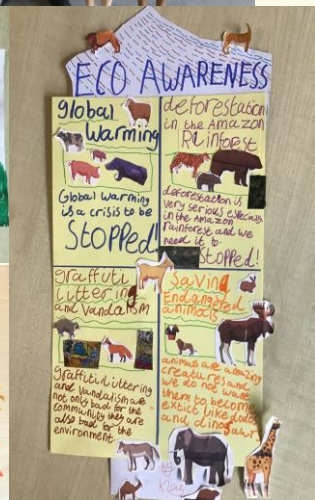 ECO AWARENESS
global
Warming
Global Warming
is a crisis to be
Stopped!
deforestation
in the Amazon
Rainforest
deforestation is
very serious especially
in the Amazon
rainforest and we
need it to
Stopped!
graffiti
littering
and vandalism
graffiti littering
and vandalism are
not only bad for the
community they are
also bad for the
environment.
Saving
Endangered
animals
animals are amazing
creatures and
we do not want
them to become
extict like dodos
and dinosaurs